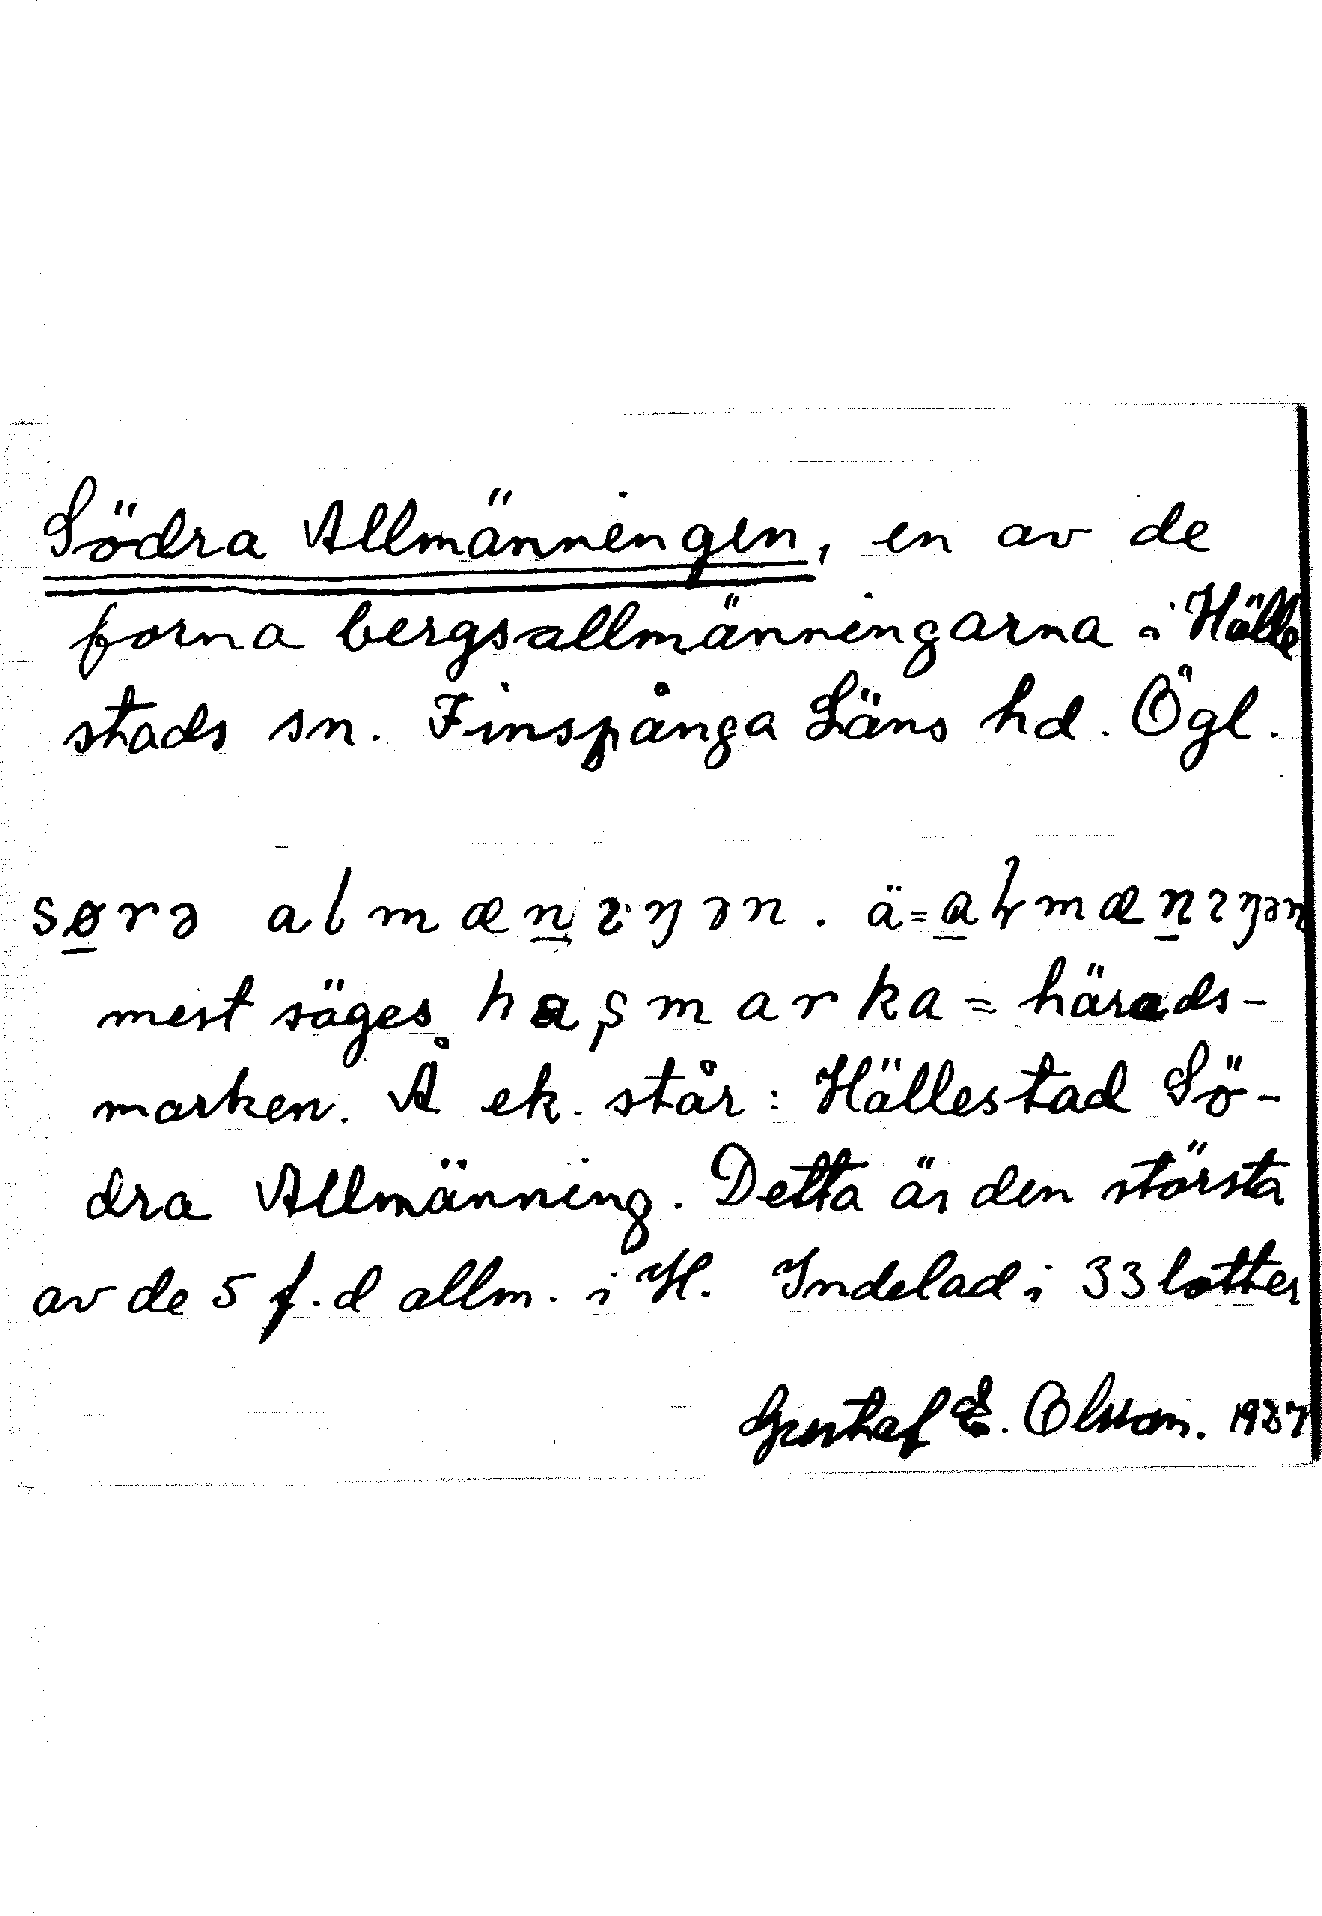 Södra Allmänningen, en av de
forna bergsallmänningarna i Hälle
stads sn. Finspånga Läns hd. Ögl.
sørə almænıŋən. ä=aɽmænıŋən
mest säges haʂmarka = härads-
marken. Å ek. står: Hällestad Sö-
dra Allmänning. Detta är den största
av de 5 f.d allm. i H. Indelad i 33 lotter
Gustaf E. Olsson. 1937